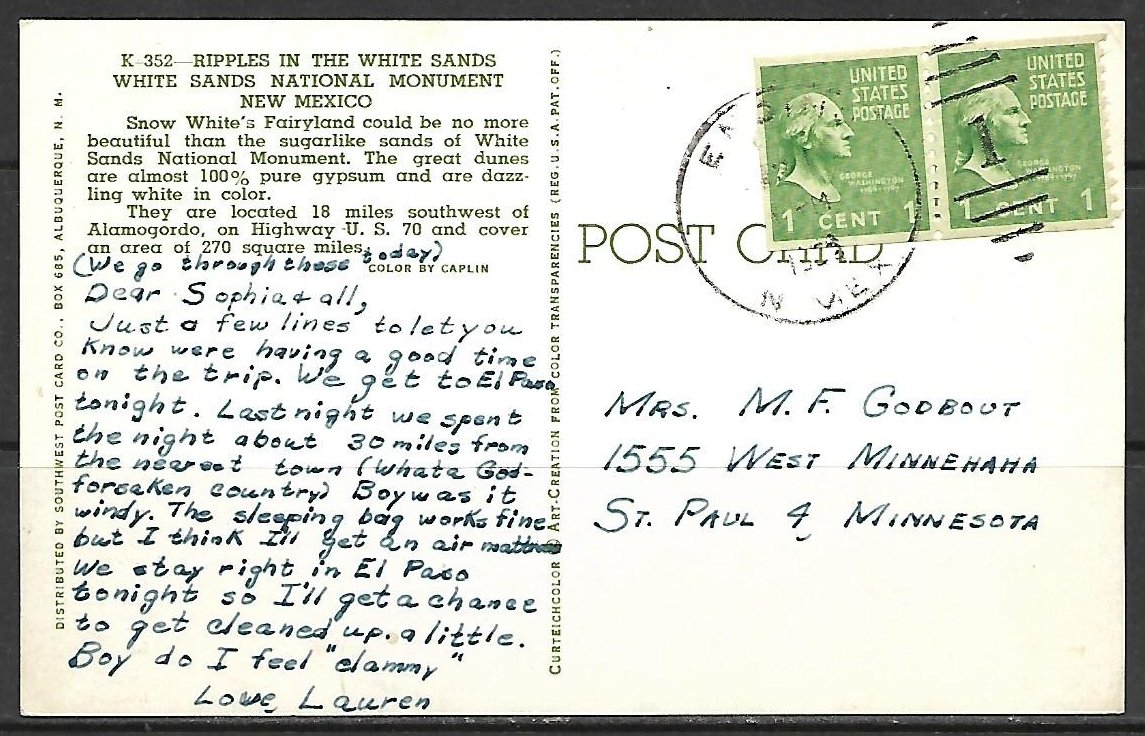 K-352—RIPPLES IN THE WHITE SANDS
WHITE SANDS NATIONAL MONUMENT
NEW MEXICO
Snow White's Fairyland could be no more
beautiful than the sugarlike sands of White
Sands National Monument. The great dunes
are almost 100% pure gypsum and are dazz-
ling white in color.
They are located 18 miles southwest of
Alamogordo, on Highway U. S. 70 and cover
an area of 270 square miles.
COLOR BY CAPLIN
(We go through these today)
Dear Sophia & all,
Just a few lines to let you
Know were having a good time
on the trip. We get to El Paso
tonight. Last night we spent
the night about 30 miles from
the nearest town (Whata God-
forsaken country) Boy was it
windy. The sleeping bag works fine
but I think I'll get an air mattress
We stay right in El Paso
tonight so I'll get a chance
to get cleaned up. a little.
Boy do I feel "clammy"
Love, Lauren
DISTRIBUTED BY SOUTHWEST POST CARD CO., BOX 685, ALBUQUERQUE, N. M.
CURTEICHCOLOR ® ART-CREATION FROM COLOR TRANSPARENCIES (REG. U.S.A. PAT. OFF.)
POST CARD
UNITED
STATES
POSTAGE
GEORGE
WASHINGTON
1789-1797
1 CENT 1
UNITED
STATES
POSTAGE
GEORGE
WASHINGTON
1789-1797
1 CENT 1
1
N MEX
MRS. M. F. GODBOUT
1555 WEST MINNEHAHA
ST. PAUL 4, MINNESOTA